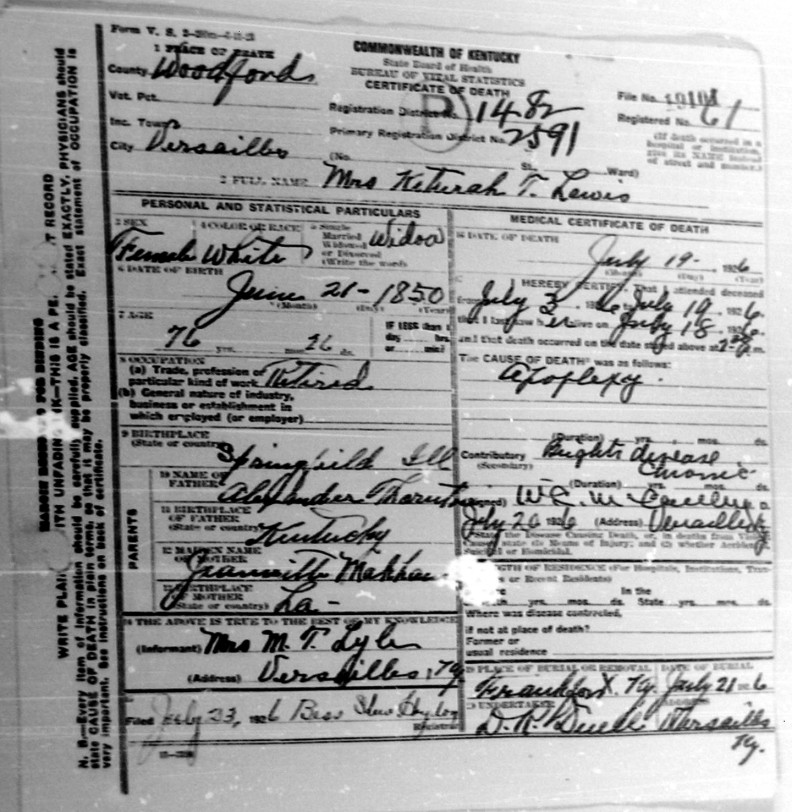 Form V. S.
1 PLACE OF DEATH
County Woodford
Vot. Pct.
Inc. Town
City Versailles
COMMONWEALTH OF KENTUCKY
State Board of Health
BUREAU OF VITAL STATISTICS
CERTIFICATE OF DEATH
Registration District No. 1482
Primary Registration District No. 2591
(No. St., Ward)
File No.
Registered No. 61
(If death occurred in a
hospital or institution,
give its NAME instead
of street and number.)
2 FULL NAME Mrs Keturah T. Lewis
PERSONAL AND STATISTICAL PARTICULARS
3 SEX
Female
4 COLOR OR RACE
White
5 Single
Married
Widowed
or Divorced
(Write the word)
Widow
6 DATE OF BIRTH
June 21 - 1850
(Month) (Day) (Year)
7 AGE
76 yrs. mos. 26 ds.
IF LESS than 1
day hrs.
or min?
8 OCCUPATION
(a) Trade, profession or
particular kind of work Retired
(b) General nature of industry,
business or establishment in
which employed (or employer)
9 BIRTHPLACE
(State or country)
Springfield Ill
PARENTS
10 NAME OF
FATHER
Alexander
11 BIRTHPLACE
OF FATHER
(State or country)
Kentucky
12 MAIDEN NAME
OF MOTHER
13 BIRTHPLACE
OF MOTHER
(State or country) La -
14 THE ABOVE IS TRUE TO THE BEST OF MY KNOWLEDGE
(Informant) Mrs M. T. Lyle
(Address) Versailles, Ky
Filed July 23, 1926 Bess
Registrar
MEDICAL CERTIFICATE OF DEATH
16 DATE OF DEATH
July 19 - 1926
(Month) (Day) (Year)
I HEREBY CERTIFY, That I attended deceased
from July 2 1926 to July 19, 1926
that I last saw her alive on July 18 1926
and that death occurred on the date stated above at m.
The CAUSE OF DEATH was as follows:
Apoplexy.
(Duration) yrs. mos. ds.
Contributory Brights disease
(Secondary) Chronic
(Duration) yrs. mos. ds.
(Signed)
July 20 1926 (Address) Versailles Ky
State the Disease Causing Death, or, in deaths from Violent
Causes state (1) Means of Injury; and (2) whether Accidental,
Suicidal or Homicidal.
LENGTH OF RESIDENCE (For Hospitals, Institutions, Tran-
or Recent Residents)
In the
yrs. mos. ds. State yrs. mos. ds.
Where was disease contracted,
if not at place of death?
Former or
usual residence
PLACE OF BURIAL OR REMOVAL
Frankfort, Ky.
DATE OF BURIAL
July 21 1926
UNDERTAKER
D. R. Duell
Versailles
Ky.
MARGIN RESERVED FOR BINDING
WRITE PLAINLY WITH UNFADING INK—THIS IS A PERMANENT RECORD
N. B.—Every item of information should be carefully supplied. AGE should be stated EXACTLY. PHYSICIANS should
state CAUSE OF DEATH in plain terms, so that it may be properly classified. Exact statement of OCCUPATION is
very important. See instructions on back of certificate.